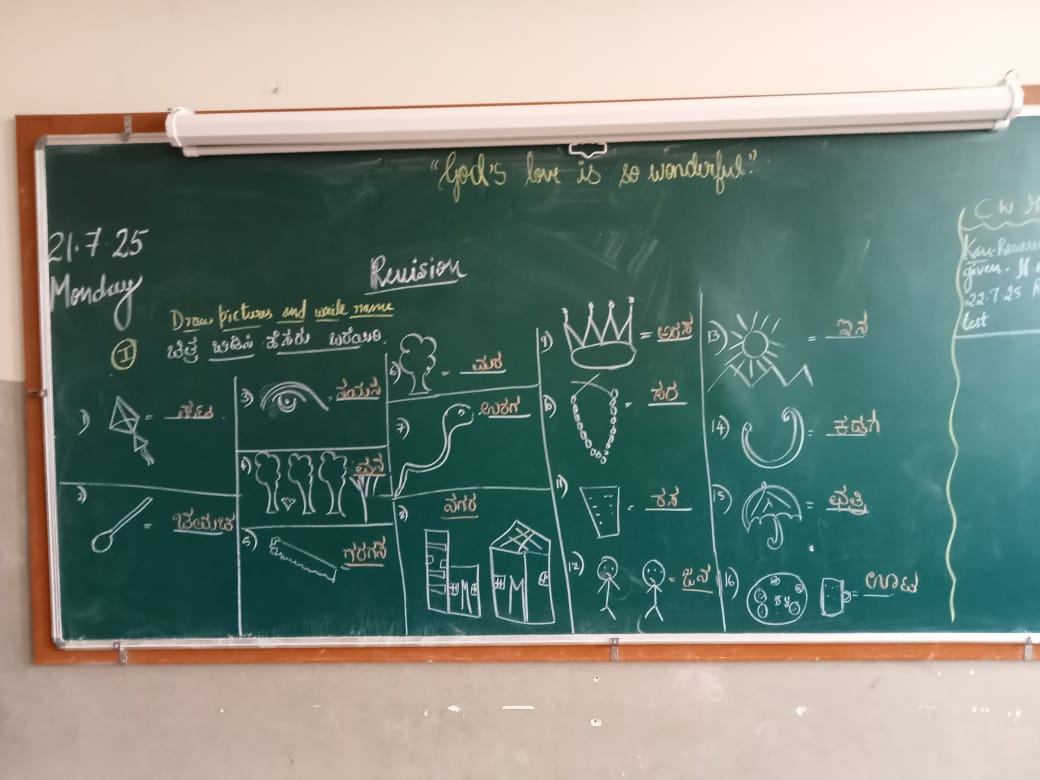 "God's love is so wonderful."
21.7.25
Monday
Revision
Draw pictures and write name
I ಚಿತ್ರ ಬಿಡಿಸಿ ಹೆಸರು ಬರೆಯಿರಿ.
1) =
2) = ಚಮಚ
3) = ನಯನ
4) = ವನ
5) ಗರಗಸ
6) = ಮರ
7) ಉರಗ
8) ನಗರ
9) = ಅರಸ
10) = ಸರ
11) = ರಸ
12) = ಜನ
13) = ಇನ
14) = ಕಡಗ
15) = ಛತ್ರಿ
16) = ಊಟ
C W
given.
22.7.25
test